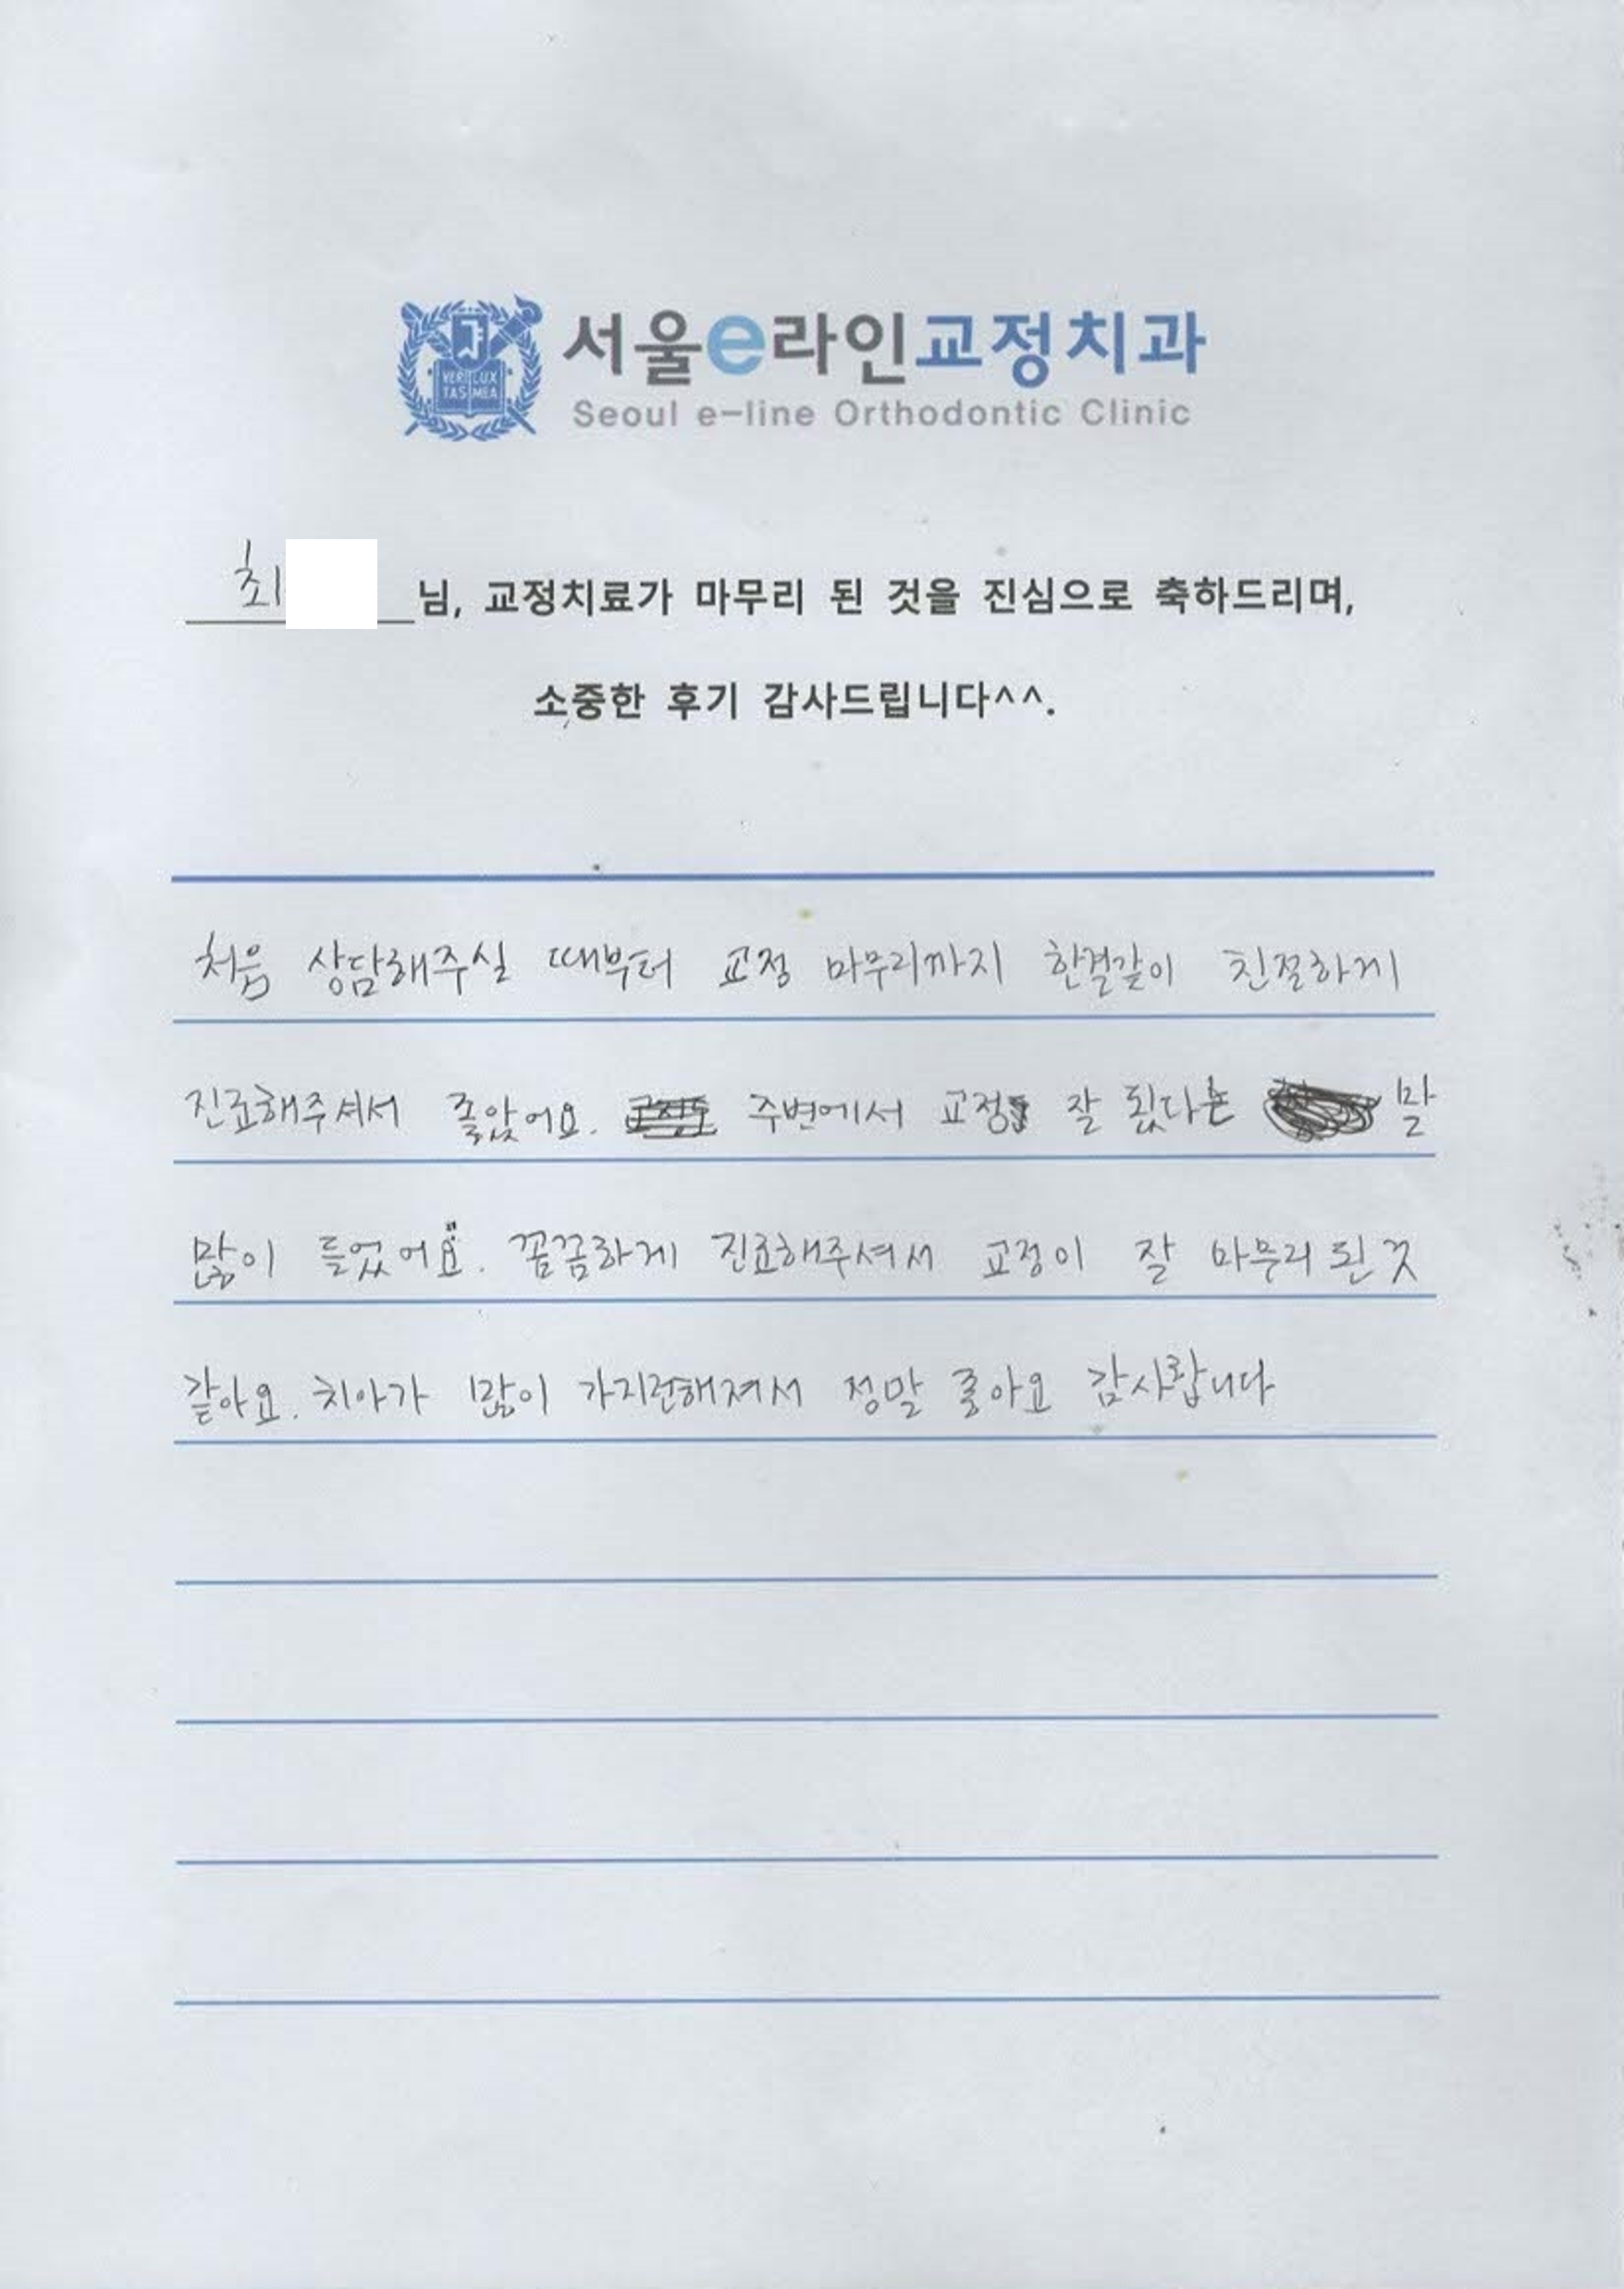 VERI LUX
TAS MEA
서울e라인교정치과
Seoul e-line Orthodontic Clinic
최 님, 교정치료가 마무리 된 것을 진심으로 축하드리며,
소중한 후기 감사드립니다^^.
처음 상담해주실 때부터 교정 마무리까지 한결같이 친절하게
진료해주셔서 좋았어요. 주변에서 교정 잘 됐다는 말
많이 들었어요. 꼼꼼하게 진료해주셔서 교정이 잘 마무리 된 것
같아요. 치아가 많이 가지런해져서 정말 좋아요 감사합니다